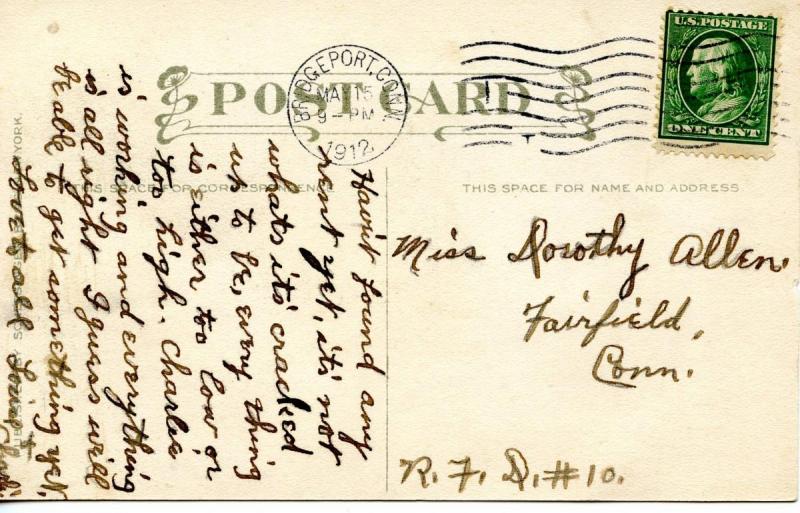 POST CARD
BRIDGEPORT, CONN.
MAY 15
9-PM
1912
U.S. POSTAGE
ONE CENT
THIS SPACE FOR CORRESPONDENCE
THIS SPACE FOR NAME AND ADDRESS
Hav'it found any
rent yet, it's not
whats it's cracked
up to be, every thing
is either too low or
too high. Charlie
is working and everything
is all right I guess will
be able to get something yet.
Love to all
Miss Dorothy Allen.
Fairfield,
Conn.
R. F. D. #10.